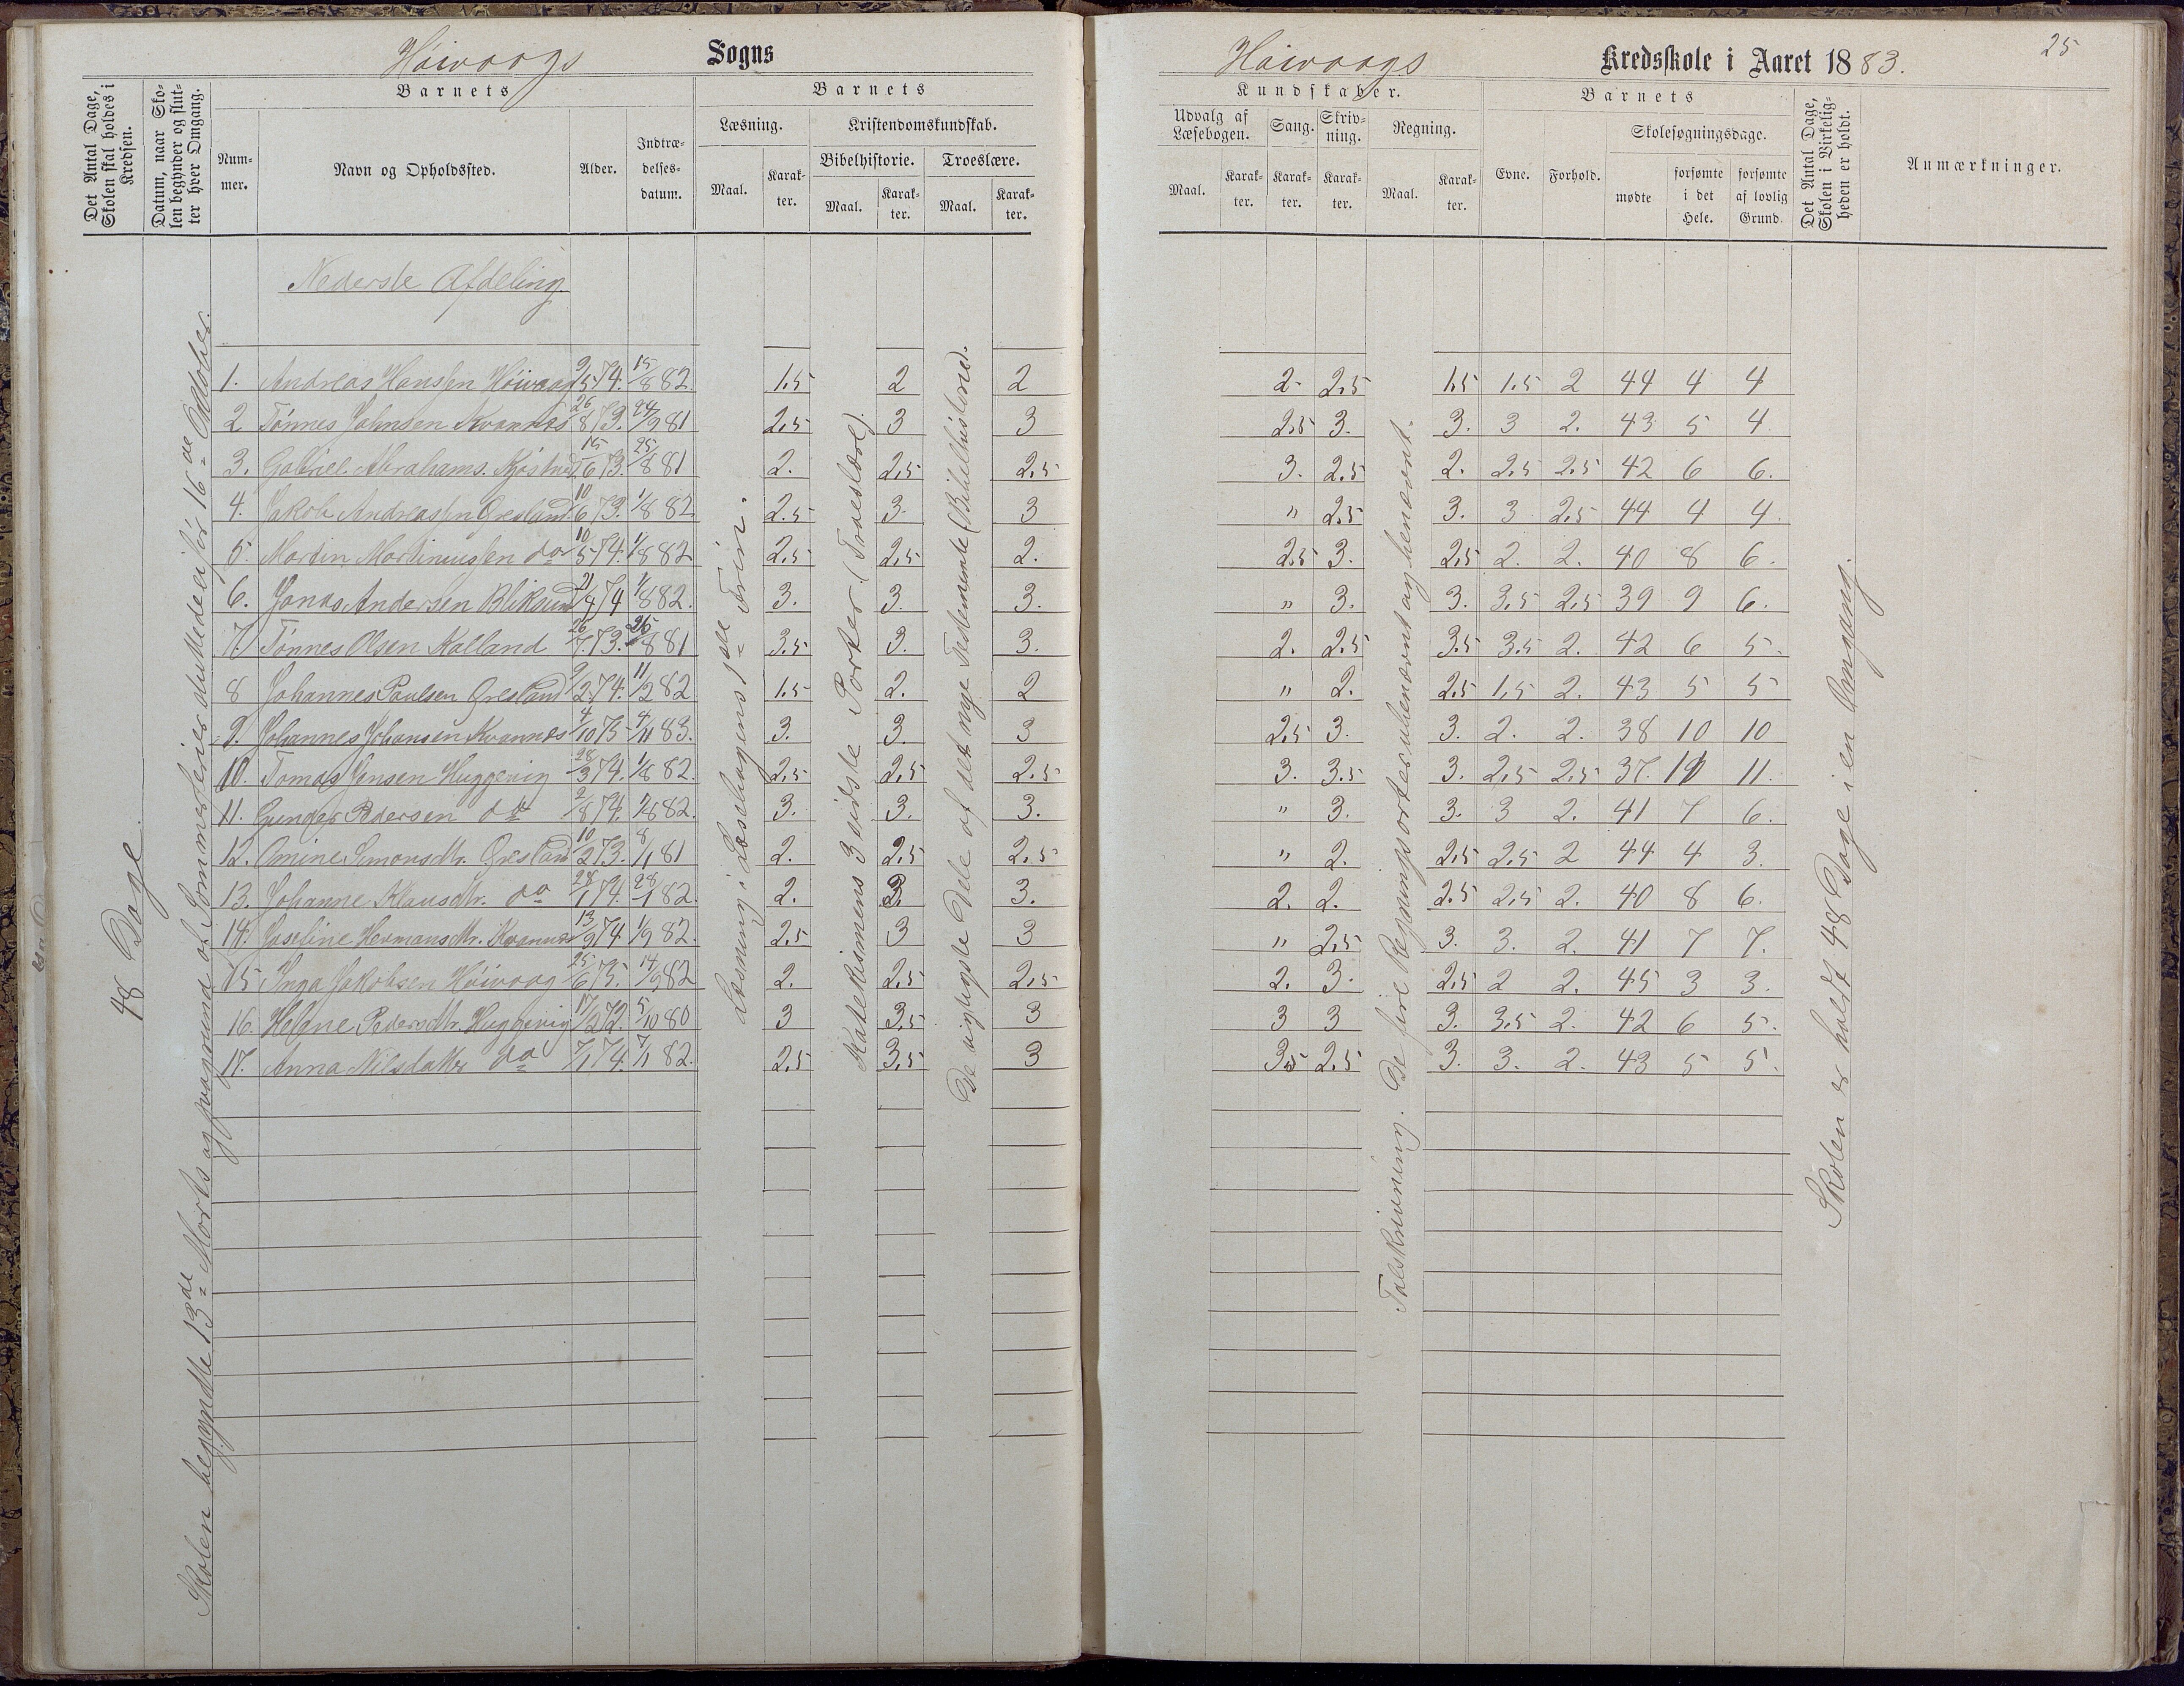 Høivaags Sogns
Høivaags Kredsskole i Aaret 1883.
25
Det Antal Dage, Skolen skal holdes i Kredsen.
Datum, naar Skolen begynder og slutter hver Omgang.
Nummer.
Barnets
Navn og Opholdssted.
Alder.
Indtrædelsesdatum.
Barnets
Læsning.
Maal.
Karakter.
Kristendomskundskab.
Bibelhistorie.
Maal.
Karakter.
Troeslære.
Maal.
Karakter.
Kundskaber.
Udvalg af Læsebogen.
Maal.
Karakter.
Sang.
Karakter.
Skrivning.
Karakter.
Regning.
Maal.
Karakter.
Barnets
Evne.
Forhold.
Skolesøgningsdage.
mødte
forsømte i det Hele.
forsømte af lovlig Grund.
Det Antal Dage, Skolen i Virkeligheden er holdt.
Anmærkninger.
48 Dage.
Skolen begyndte 13de Marts og paagrund af Sommerferier sluttede ei før 16de Oktober.
Nederste Afdeling.
Læsning i Læsebogens 1ste Trin.
Katekismens 3 sidste Parter. (Troeslære).
De vigtigste Dele af det nye Testemente (Bibelhistorie).
Talskrivning. De fire Regningsarter ubenævnt og benævnt.
Skolen er holdt 48 Dage i en Omgang.
1. Andreas Hansen Høivaag 9/5 74. 15/8 82. 1.5 2 2 2- 2.5 1.5 1.5 2 44 4 4
2 Tønnes Johnsen Kvannes 26/8 73. 24/9 81 2.5 3 3 2.5 3. 3. 3 2. 43 5 4
3. Gabriel Abrahams. 15/6 73. 25/8 81 2. 2.5 2.5 3. 2.5 2. 2.5 2.5 42 6 6.
4. Jakob Andreassen Øresland. 10/6 73. 1/8 82 2.5 3. 3 " 2.5 3. 3 2.5 44 4 4
5. Martin Martinussen do 10/5 74. 1/8 82 2.5 2.5 2. 2.5 3. 2.5 2. 2. 40 8 6.
6. Jonas Andersen Bliksund 21/4 74 1/8 82. 3. 3. 3. " 3. 3. 3.5 2.5 39 9 6.
7. Tønnes Olsen Kalland 26/7 73. 25/8 81 3.5 3. 3. 2. 2.5 3.5 3.5 2. 42 6 5.
8 Johannes Paulsen Øresland 9/2 74. 11/2 82 1.5 2. 2 " 2. 2.5 1.5 2. 43 5 5
9. Johannes Johansen Kvannes 4/10 75 4/11 83. 3. 3. 3 2.5 3. 3. 2. 2. 38 10 10
10. Tomas Jensen Huggevig 28/3 74. 1/8 82. 2.5 2.5 2.5 3. 3.5 3. 2.5 2.5 37. 11 11.
11. Gunder Pedersen do 2/8 74. 1/8 82. 3. 3. 3. " 3. 3. 3 2. 41 7 6.
12. Amine Simonsdtr. Øresland 10/2 73. 8/1 81 2. 2.5 2.5 " 2. 2.5 2.5 2 44 4 3.
13. Johanne Klausdtr. do 28/1 74. 28/1 82. 2. 3. 3. 2. 2. 2.5 2.5 2. 40 8 6.
14. Josefine Hermansdtr. Kvannes 13/9 74 1/9 82. 2.5 3 3 " 2.5 3. 3. 2. 41 7 7.
15 Inga Jakobsen Høivaag 25/6 75. 14/9 82 2. 2.5 2.5 2. 3. 2.5 2 2. 45 3 3.
16. Helene Pedersdtr. Huggevig 17/2 72. 5/10 80 3 3.5 3 3 3 3. 3.5 2. 42 6 5.
17. Anna Nilsdatter do 7/1 74. 7/1 82. 2.5 3.5 3 3.5 2.5 3. 3. 2. 43 5 5.